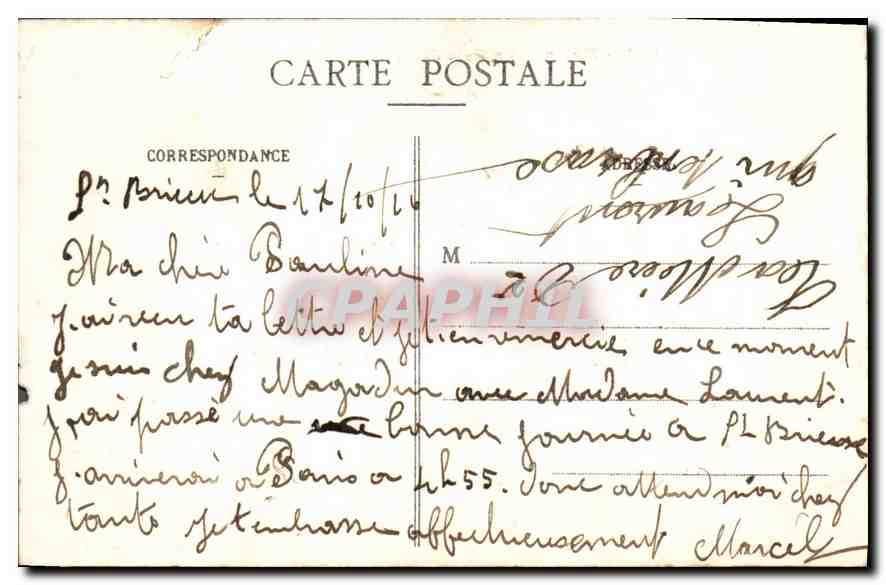 CARTE POSTALE
CORRESPONDANCE
ADRESSE
St Brieuc le 17/10/16
Ma chère Pauline
M
CPAPHIL
j'ai recu ta lettre et je t'en remercie en ce moment
je suis chez Magadur avec Madame Laurent.
j'ai passé une bonne journée a St Brieuc
j'arriverai a Paris a 4h55. donc attend moi chez
tante je t'embrasse affectueusement
Marcel
Ta Mère
Laurent
qui t'embrasse